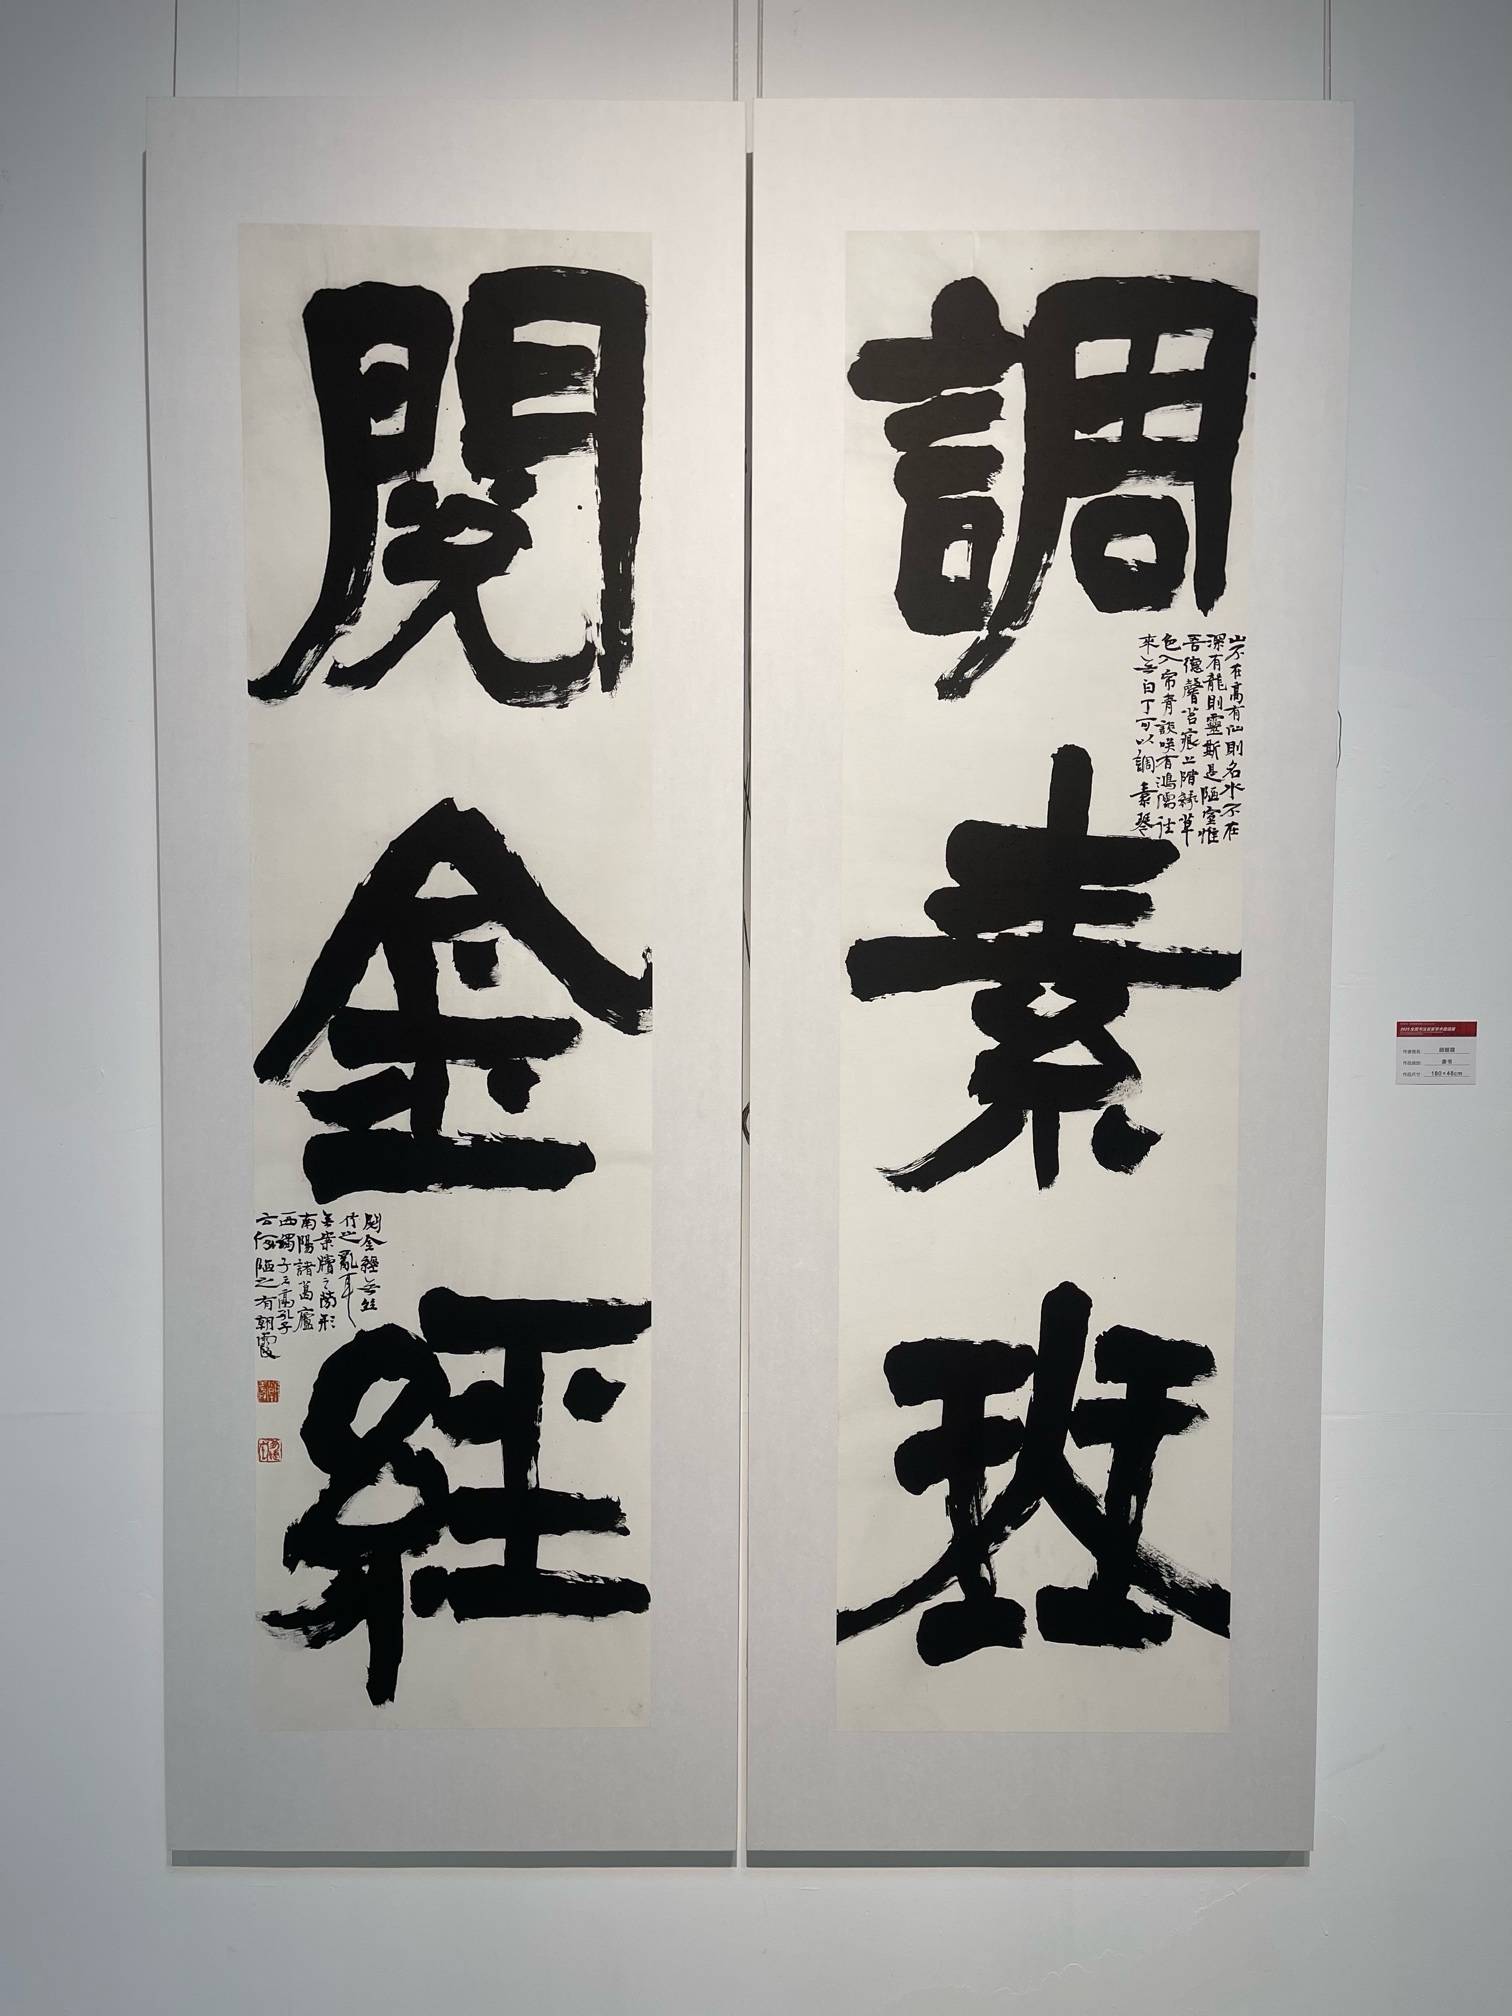 調素琴
山不在高有仙則名水不在
深有龍則靈斯是陋室惟
吾德馨苔痕上階綠草
色入帘青談笑有鴻儒往
來无白丁可以調素琴
閱金經
閱金經无絲
竹之亂耳
无案牘之勞形
南陽諸葛廬
西蜀子云亭孔子
云何陋之有朝霞
作者姓名
作品尺寸 180×48cm